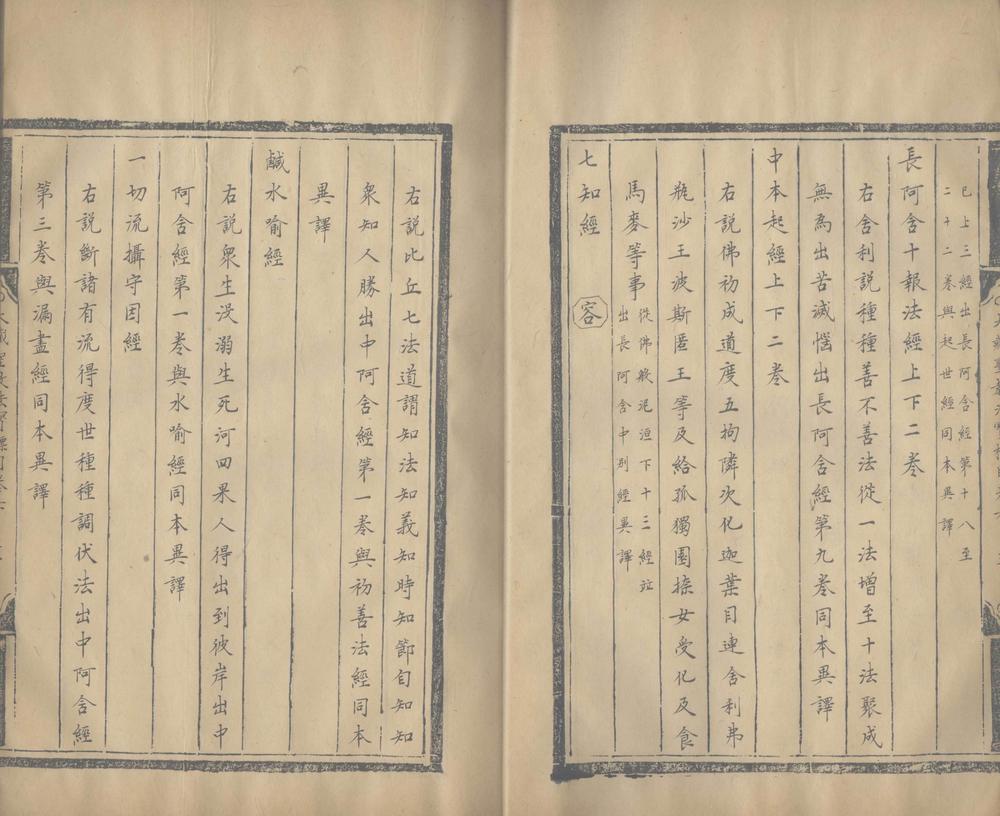 已上三經出長阿含經第十八至
二十二卷與起世經同本異譯
長阿含十報法經上下二卷
右舍利說種種善不善法從一法增至十法聚成
無為出苦滅惱出長阿含經第九卷同本異譯
中本起經上下二卷
右說佛初成道度五拘隣次化迦葉目連舍利弗
瓶沙王波斯匿王等及給孤獨園㮈女受化及食
馬麥等事
從佛般泥洹下十三經竝
出長阿含中別經異譯
七知經 容
右說比丘七法道謂知法知義知時知節自知知
衆知人勝出中阿含經第一卷與初善法經同本
異譯
鹹水喻經
右說衆生沒溺生死河四果人得出到彼岸出中
阿含經第一卷與水喻經同本異譯
一切流攝守因經
右說斷諸有流得度世種種調伏法出中阿含經
第三卷與漏盡經同本異譯